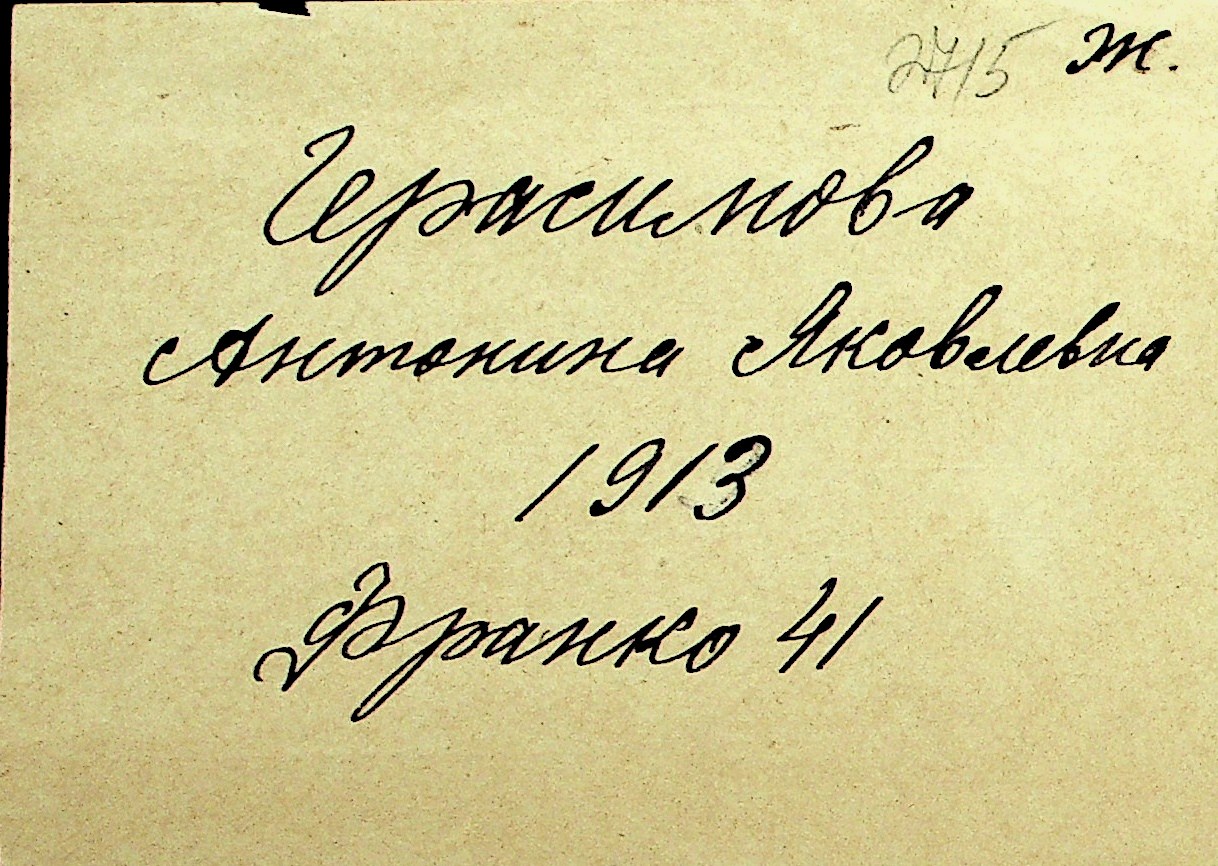 2715 Ж.
Герасимова
Антонина Яковлевна
1913
Франко 41